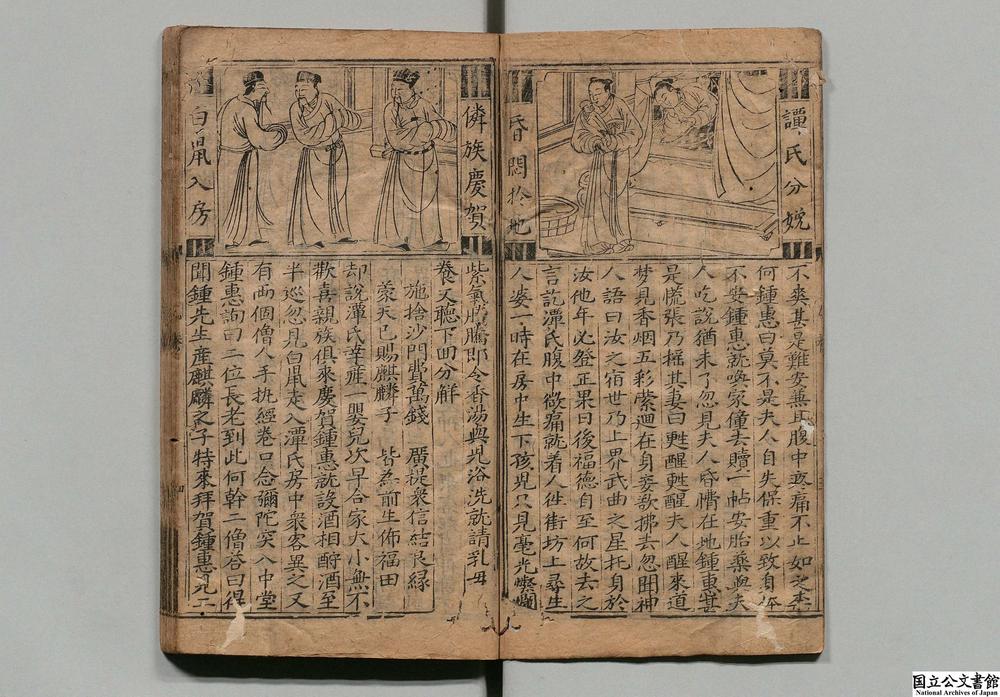 譚氏分娩
昏悶於地
不爽甚是難安兼且腹中疼痛不止如之奈
何鍾惠曰莫不是夫人自失保重以致身体
不安鍾惠就喚家僮去贖一帖安胎藥與夫
人吃說猶未了忽見夫人昏憒在地鍾惠甚
是慌張乃搖其妻曰甦醒甦醒夫人醒來道
夢見香烟五彩縈迴在身妾欲拂去忽聞神
人語曰汝之宿世乃上界武曲之星托身於
汝他年必登正果日後福德自至何故去之
言訖潭氏腹中微痛就着人徃街坊上尋生
人婆一時在房中生下孩児只見毫光燦爛
憐族慶賀
白鼠入房
紫氣騰騰即令香湯與児浴洗就請乳母
養天聽下回分解
施捨沙門費萬錢 廣提衆信結良緣
蒙天已賜麒麟子 皆為前生佈福田
却說潭氏幸産一嬰兒次早合家大小無不
歡喜親族俱來慶賀鍾惠就設酒相酧酒至
半巡忽見白鼠走入潭氏房中衆客異之又
有两個僧人手执經卷口念彌陀突入中堂
鍾惠詢曰二位長老到此何幹二僧答曰得
聞鍾先生産麒麟之子特來拜賀鍾惠見二
国立公文書館
National Archives of Japan